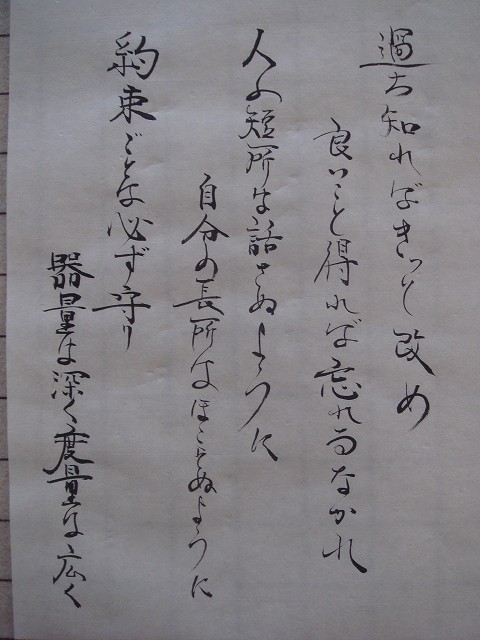 過ち知ればきっと改め
良いこと得れば忘れるなかれ
人の短所は話さぬように
自分の長所はほこらぬように
約束ごとは必ず守り
器量は深く度量は広く